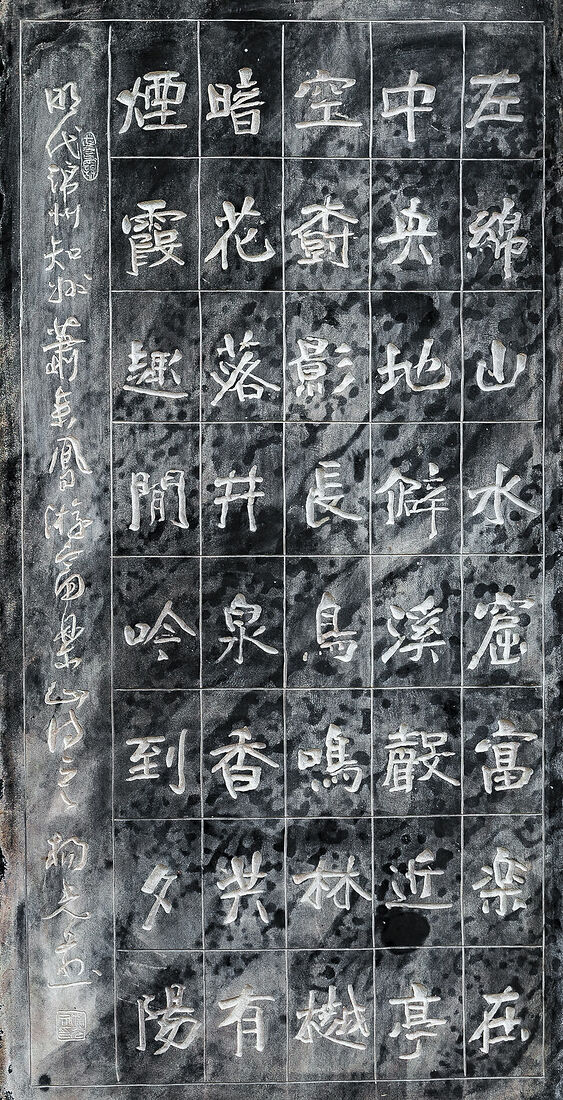 左綿山水窟富楽在
中央地僻溪聲近亭
空樹影長鳥鳴林樾
暗花落井泉香共有
煙霞趣閒吟到夕陽
明代綿州知州蕭來鳳游富樂山詩之